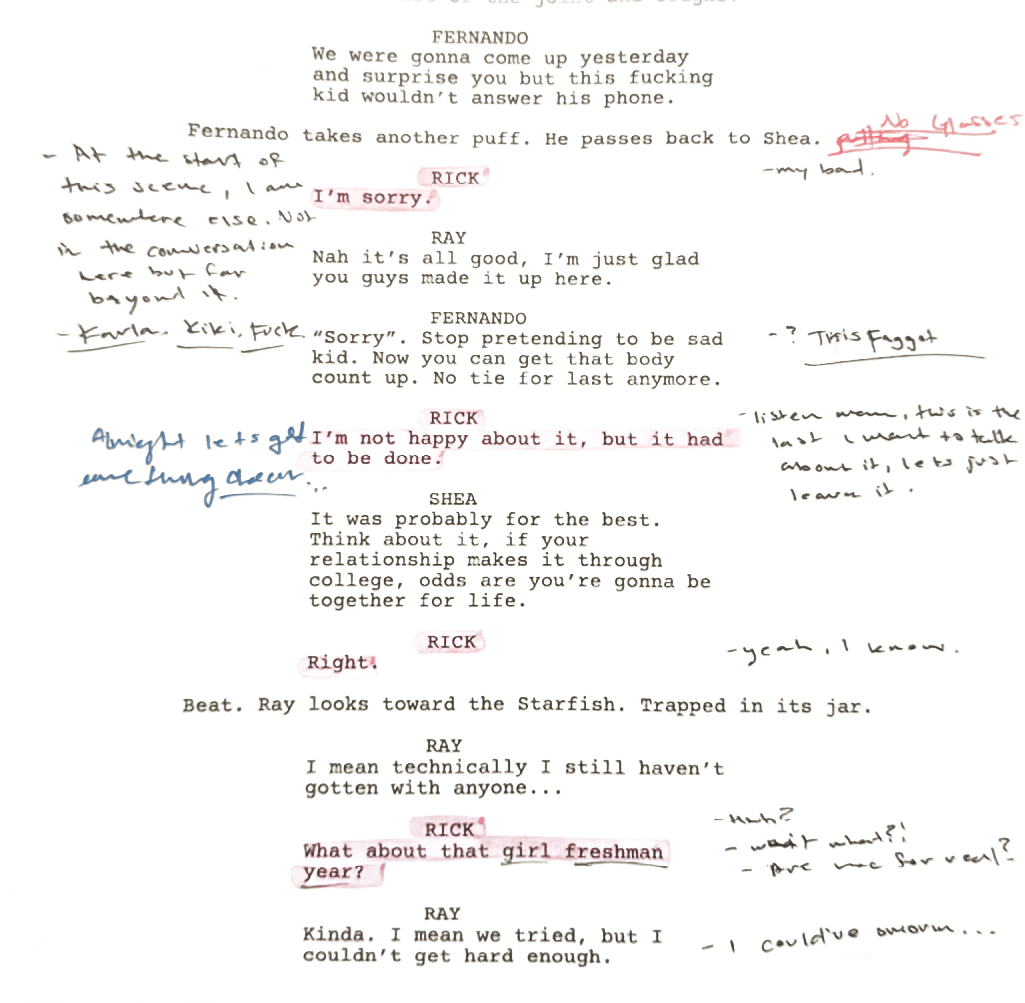 FERNANDO
We were gonna come up yesterday
and surprise you but this fucking
kid wouldn't answer his phone.
No Glasses
Fernando takes another puff. He passes back to Shea.
- At the start of
this scene, I am
somewhere else. Not
in the conversation
here but far
beyond it.
- Karla. Kiki. Fuck.
RICK
-my bad.
I'm sorry.
RAY
Nah it's all good, I'm just glad
you guys made it up here.
FERNANDO
"Sorry". Stop pretending to be sad
kid. Now you can get that body
count up. No tie for last anymore.
-? This Faggot
RICK
I'm not happy about it, but it had
to be done.
Alright lets get
-listen man, this is the
last I want to talk
about it, lets just
leave it.
SHEA
It was probably for the best.
Think about it, if your
relationship makes it through
college, odds are you're gonna be
together for life.
RICK
Right.
-yeah, I know.
Beat. Ray looks toward the Starfish. Trapped in its jar.
RAY
I mean technically I still haven't
gotten with anyone...
RICK
What about that girl freshman
year?
-Huh?
- wait what?!
- Are we for real?
RAY
Kinda. I mean we tried, but I
couldn't get hard enough.
- I could've sworn...